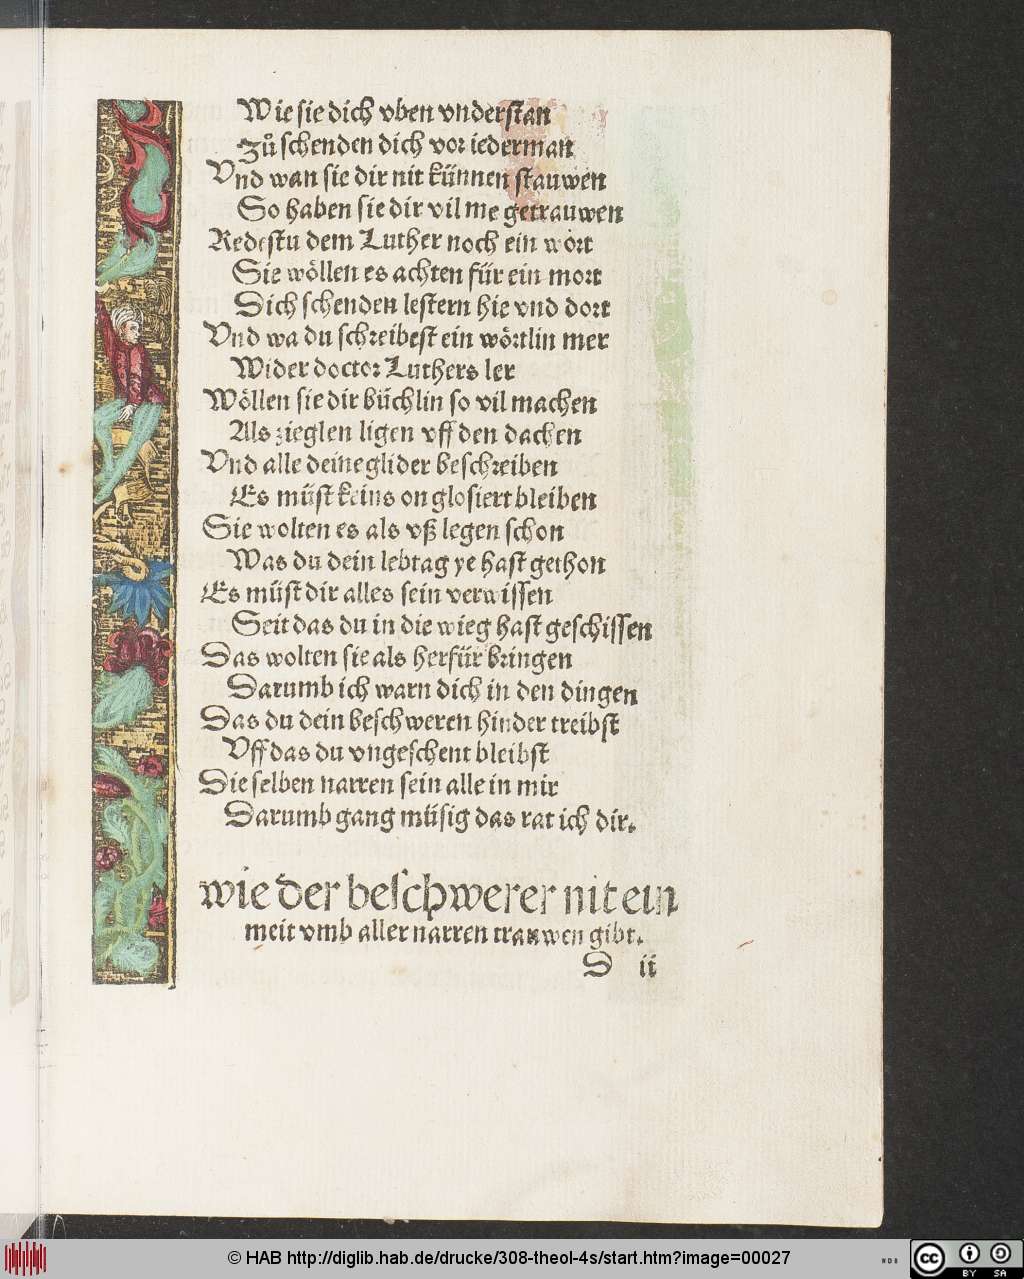 Wie sie dich vben vnderstan
Zů schenden dich vor iederman
Vnd wan sie dir nit künnen stauwen
So haben sie dir vil me getrauwen
Redestu dem Luther noch ein wort
Sie wöllen es achten für ein mort
Dich schenden lestern hie vnd dort
Vnd wa du schreibest ein wörtlin mer
Wider doctor Luthers ler
Wöllen sie dir büchlin so vil machen
Als zieglen ligen vff den dachen
Vnd alle deine glider beschreiben
Es müst keins on glosiert bleiben
Sie wolten es als vß legen schon
Was du dein lebtag ye hast gethon
Es müst dir alles sein verwissen
Seit das du in die wieg hast geschissen
Das wolten sie als herfür bringen
Darumb ich warn dich in den dingen
Das du dein beschweren hinder treibst
Vff das du vngeschent bleibst
Die selben narren sein alle in mir
Darumb gang müsig das rat ich dir.
wie der beschwerer nit ein
meit vmb aller narren trauwen gibt.
D ii
© HAB http://diglib.hab.de/drucke/308-theol-4s/start.htm?image=00027
WDB
cc BY SA